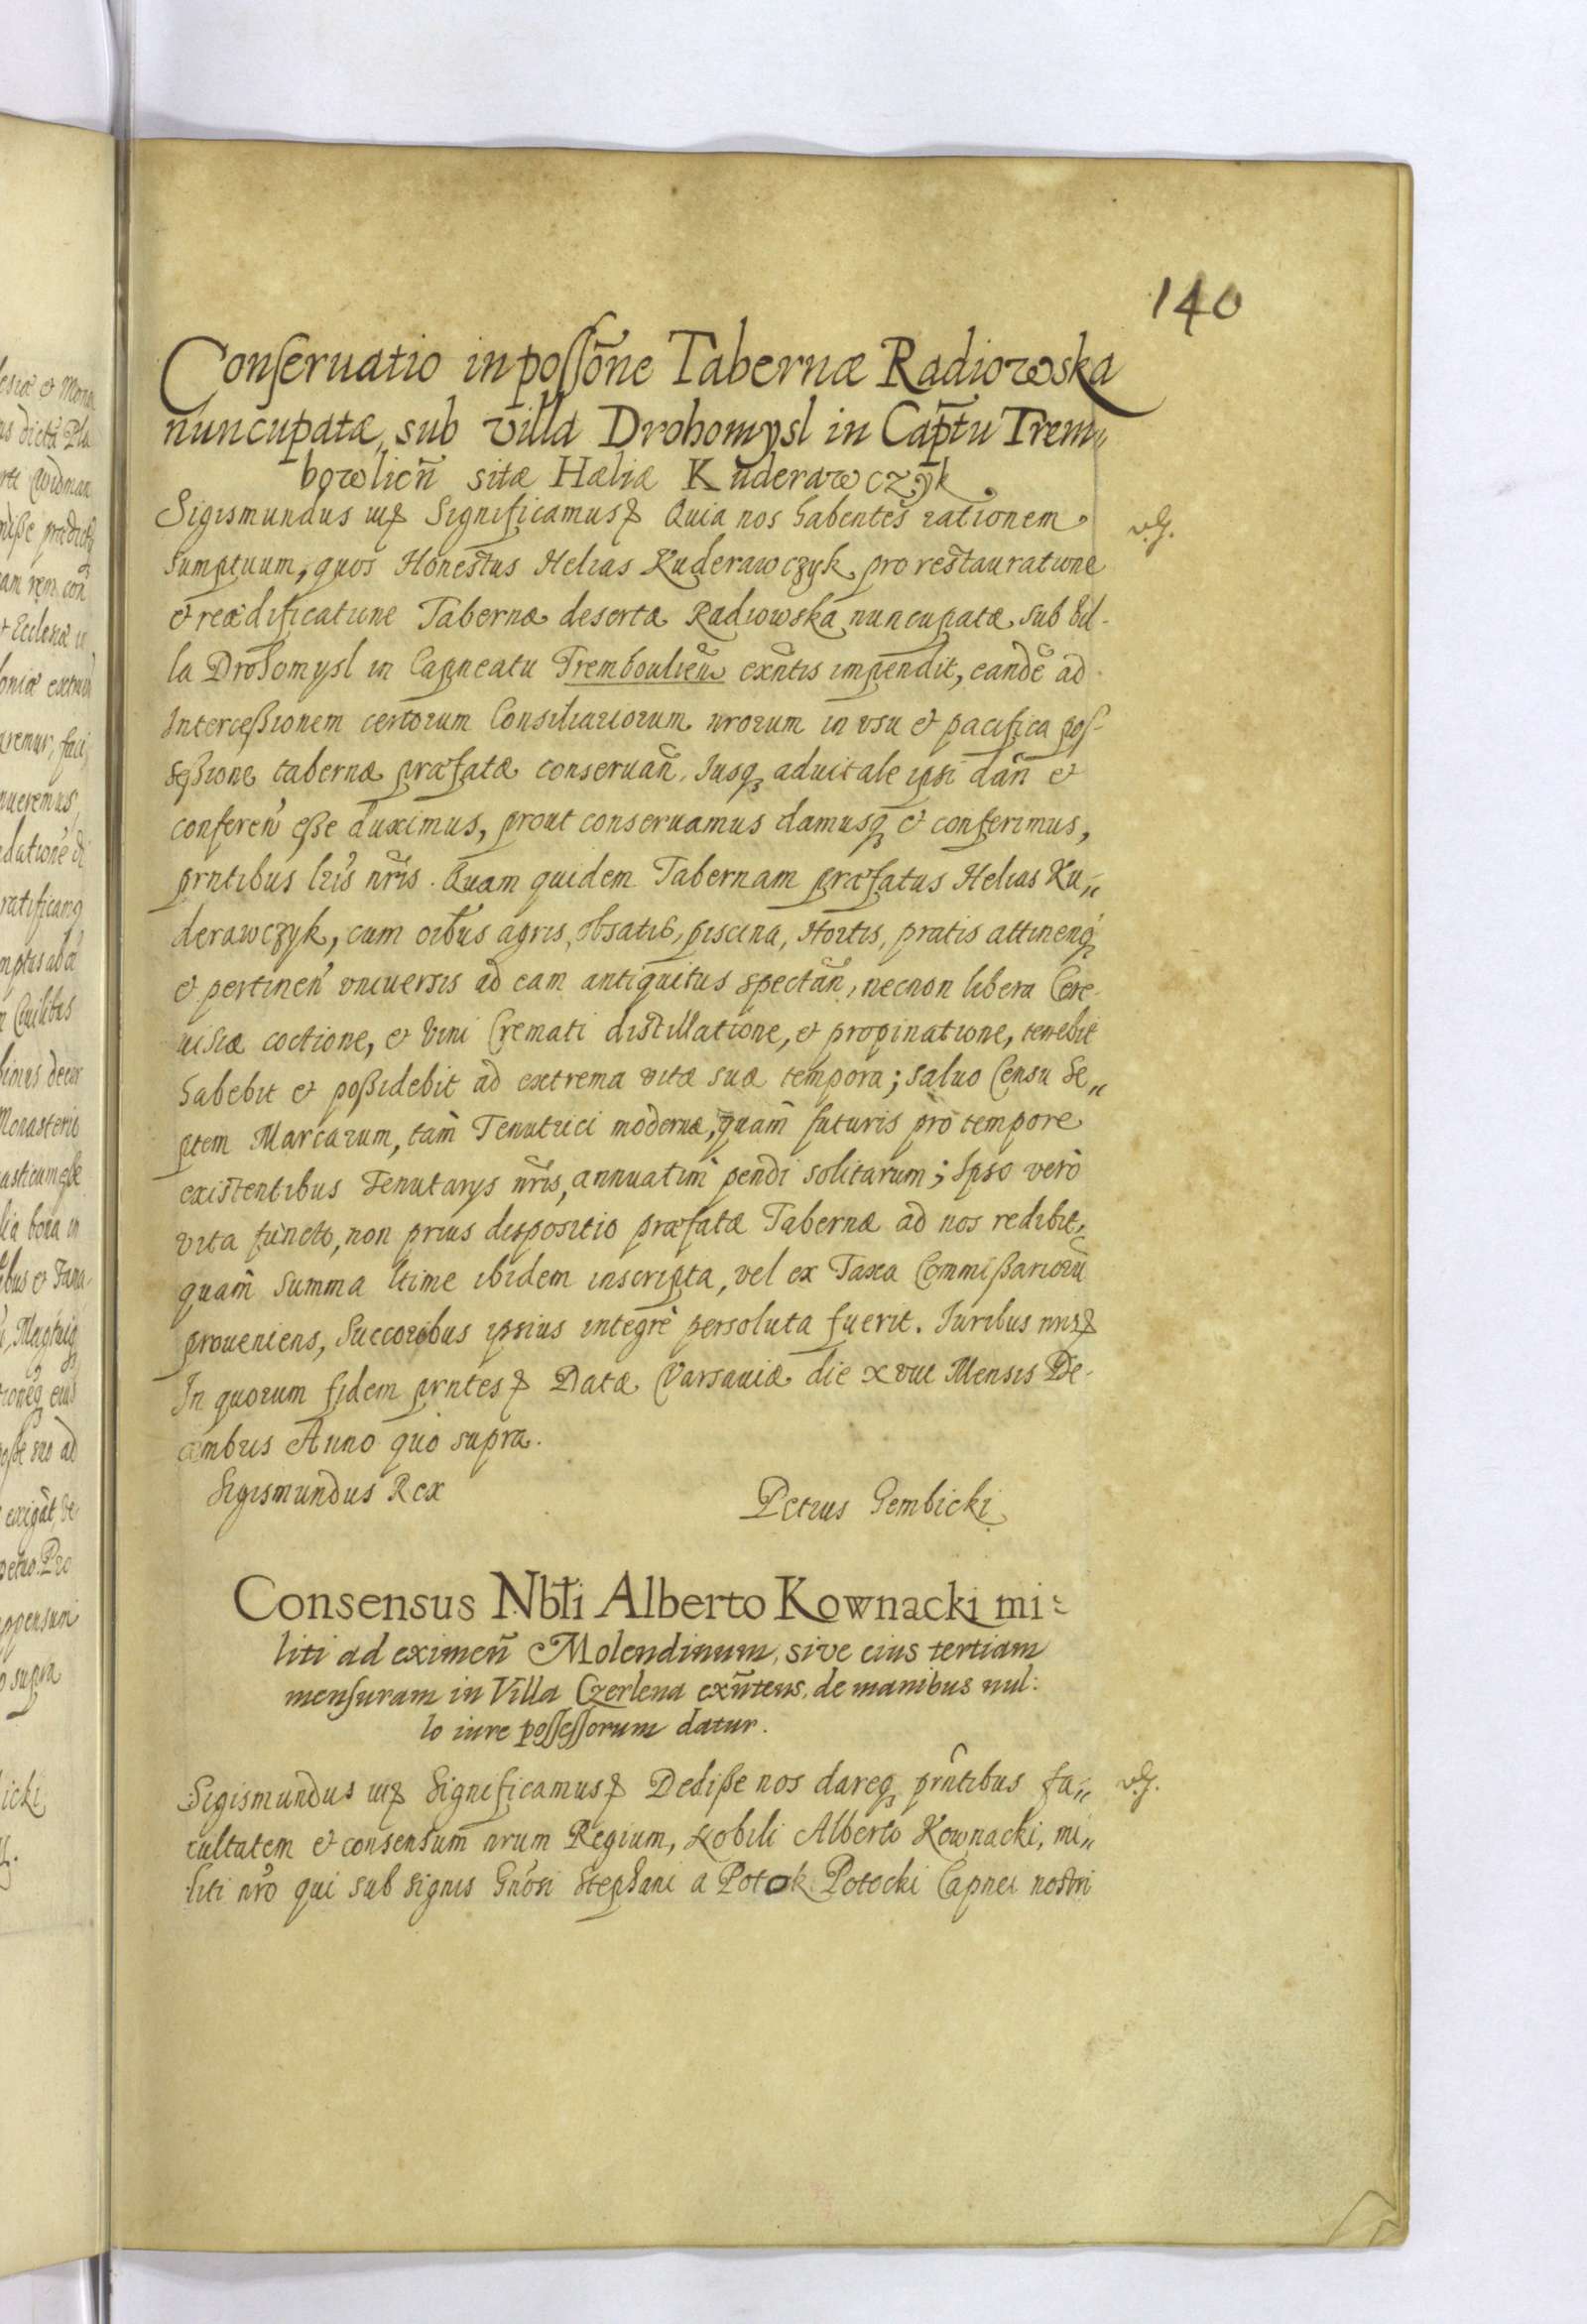 140
Conseruatio in possõne Tabernæ Radiowska
nuncupatæ, sub villa Drohomysl in Captũ Trem„
bowlicñ sitæ Hæliæ Kuderawczyk
Sigismundus III Significamus Quia nos habentes rationem
sumptuum, quos Honestus Helias Kuderawczyk pro restauratione
et reædificatione Tabernæ desertæ Radiowska nuncupatæ sub Vil-
la Drohomysl in Capneatu Trembouliẽn exñtis impendit, eandẽ ad
Intercessionem certorum Consiliariorum nrorum in vsu et pacifica pos-
sessione tabernæ præfatæ conseruañ, Jusq aduitale ipsi dañ et
conferen̉ esse duximus, prout conseruamus damusq et conferimus,
prntibus lris nr̃is. Quam quidem Tabernam præfatus Helias Ku„
derawczyk, cum oibus agris, obsatis, piscina, Hortis, pratis attinenq
et pertinen̉ vniuersis ad eam antiquitus spectañ, necnon libera Cere-
uisiæ coctione, et Vini Cremati distillatione, et propinatione, tenebit
habebit et possidebit ad extrema vitæ suæ tempora; saluo Censu Se„
ptem Marcarum, tam̀ Tenutrici modernæ, quam̀ futuris prò tempore
existentibus Tenutarys nr̃is, annuatim̀ pendi solitarum; Ipso verò
vita functo, non prius dispositio præfatæ Tabernæ ad nos redibit,
quam̀ summa ltime ibidem inscripta, vel ex Taxa Commissariorũ
proueniens, Succoribus ipsius integrè persoluta fuerit. Iuribus nris
In quorum fidem prntes Datæ Varsauiæ die xviii Mensis De-
cembris Anno quo supra.
Sigismundus Rex
Petrus Gembicki
Consensus Nbłi Alberto Kownacki mi-
liti ad eximeñ Molendinum, sive eius tertiam
mensuram in Villa Czerlena exñtens, de manibus nul:
lo iure possessorum datur.
Sigismundus III Significamus Dedisse nos dareq prñtibus fa„
cultatem et consensum nrum Regium, Nobili Alberto Kownacki, mi„
liti nro qui sub signis Gnosi Stephani a Potok Potocki Capnei nostri